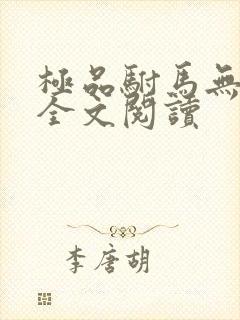 極品駙馬無
全文閱讀
李唐胡